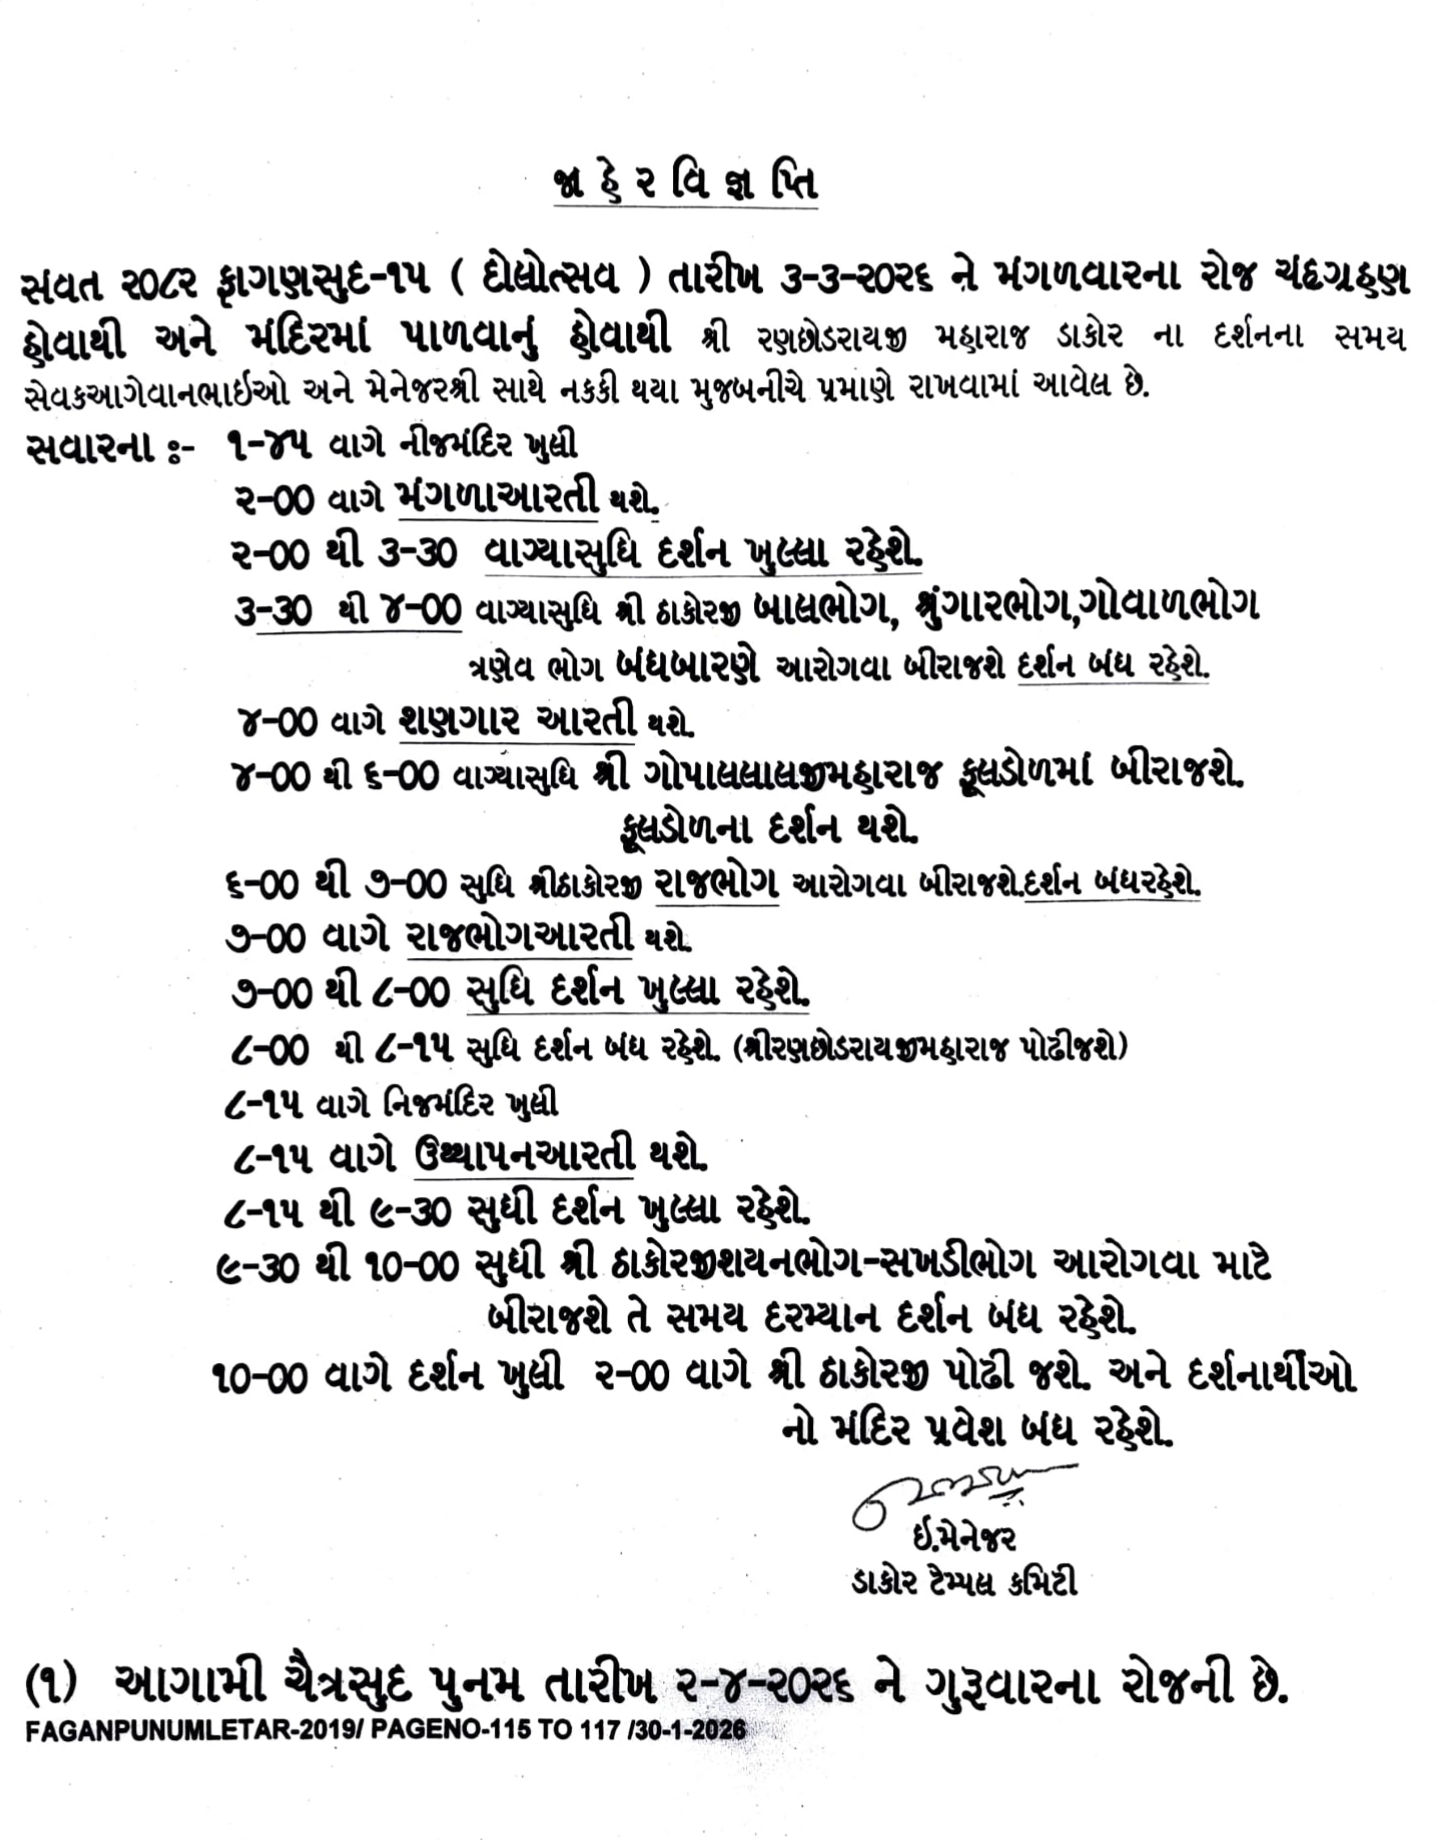 જાહેરવિજ્ઞપ્તિ
સંવત ૨૦૮૨ ફાગણસુદ-૧૫ ( દોલોત્સવ ) તારીખ ૩-૩-૨૦૨૬ ને મંગળવારના રોજ ચંદ્રગ્રહણ
હોવાથી અને મંદિરમાં પાળવાનું હોવાથી શ્રી રણછોડરાયજી મહારાજ ડાકોર ના દર્શનના સમય
સેવકઆગેવાનભાઇઓ અને મેનેજરશ્રી સાથે નકકી થયા મુજબનીચે પ્રમાણે રાખવામાં આવેલ છે.
સવારના :- ૧-૪૫ વાગે નીજમંદિર ખુલી
૨-૦૦ વાગે મંગળાઆરતી થશે.
૨-૦૦ થી ૩-૩૦ વાગ્યાસુધિ દર્શન ખુલ્લા રહેશે.
૩-૩૦ થી ૪-૦૦ વાગ્યાસુધિ શ્રી ઠાકોરજી બાલભોગ, શ્રુંગારભોગ,ગોવાળભોગ
ત્રણેવ ભોગ બંધબારણે આરોગવા બીરાજશે દર્શન બંધ રહેશે.
૪-૦૦ વાગે શણગાર આરતી થશે.
૪-૦૦ થી ૬-૦૦ વાગ્યાસુધિ શ્રી ગોપાલલાલજીમહારાજ ફૂલડોળમાં બીરાજશે.
ફૂલડોળના દર્શન થશે.
૬-૦૦ થી ૭-૦૦ સુધિ શ્રીઠાકોરજી રાજભોગ આરોગવા બીરાજશે.દર્શન બંધરહેશે.
૭-૦૦ વાગે રાજભોગઆરતી થશે.
૭-૦૦ થી ૮-૦૦ સુધિ દર્શન ખુલ્લા રહેશે.
૮-૦૦ થી ૮-૧૫ સુધિ દર્શન બંધ રહેશે. (શ્રીરણછોડરાયજીમહારાજ પોઢીજશે)
૮-૧૫ વાગે નિજમંદિર ખુલી
૮-૧૫ વાગે ઉથ્થાપનઆરતી થશે.
૮-૧૫ થી ૯-૩૦ સુધી દર્શન ખુલ્લા રહેશે.
૯-૩૦ થી ૧૦-૦૦ સુધી શ્રી ઠાકોરજીશયનભોગ-સખડીભોગ આરોગવા માટે
બીરાજશે તે સમય દરમ્યાન દર્શન બંધ રહેશે.
૧૦-૦૦ વાગે દર્શન ખુલી ૨-૦૦ વાગે શ્રી ઠાકોરજી પોઢી જશે. અને દર્શનાર્થીઓ
નો મંદિર પ્રવેશ બંધ રહેશે.
ઇ.મેનેજર
ડાકોર ટેમ્પલ કમિટી
(૧) આગામી ચૈત્રસુદ પુનમ તારીખ ૨-૪-૨૦૨૬ ને ગુરૂવારના રોજની છે.
FAGANPUNUMLETAR-2019/ PAGENO-115 TO 117 /30-1-2026